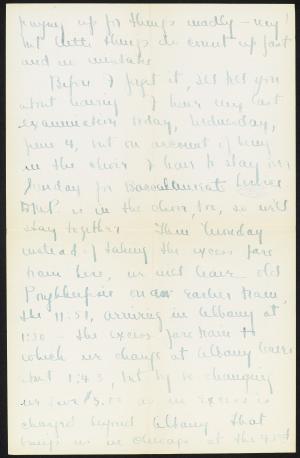 paying up for things madly - my!
but little things do count up fast
and no mistake.
Before I forget it, let tell you
about leaving. I have my last
examination today, Wednesday,
June 4, but on account of being
in the choir I have to stay over
Sunday for Baccalaureate Service
is in the choir, too, so will
stay together. Then Monday
instead of taking the excess fare
train here, we will leave old
Poughkeepsie on an earlier train,
the 11:51, arriving in Albany at
1:30 - the excess fare train
which we change at Albany leaves
at 1:45, but by so changing
we save $5.00 as no excess is
charged beyond Albany. That
brings us in Chicago at the